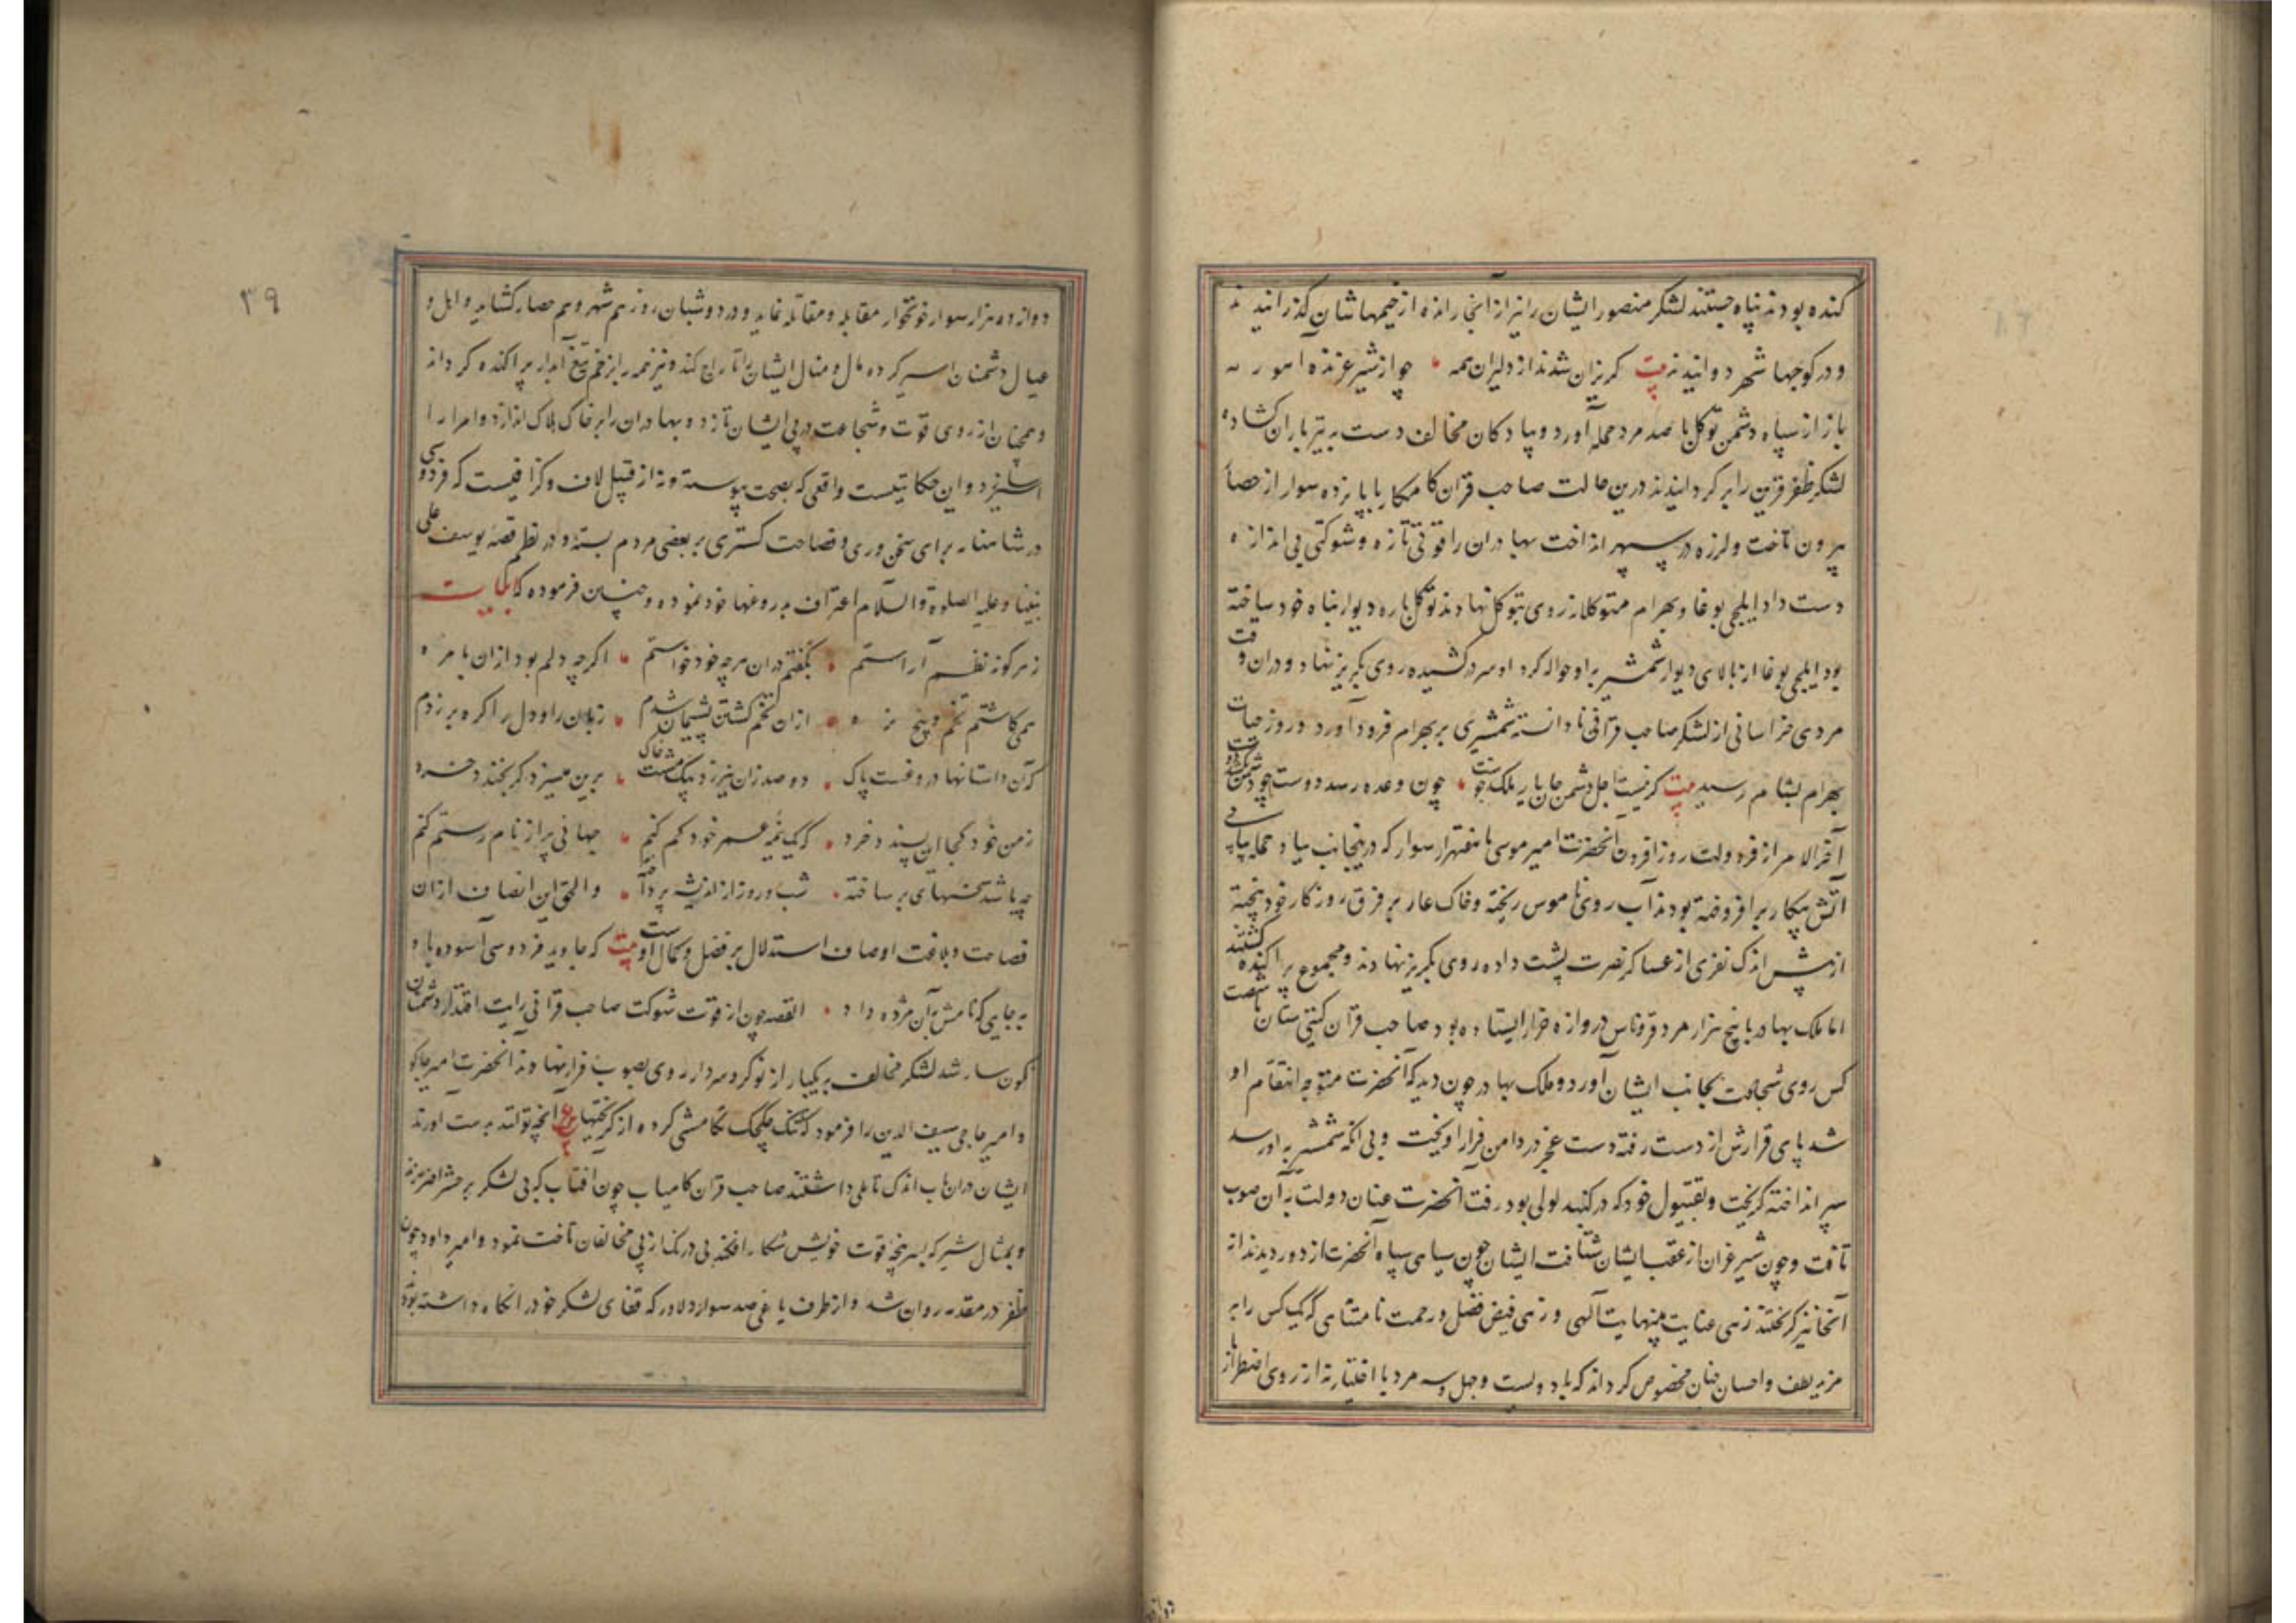 کنده بودند پناه جستند لشکر منصور ایشان را نیز از آنجا رانده از خیمهاشان گذرانیدند
و در کوچها شهر دوانیدند بیت گریزان شدند از دلیران همه چو از شیر غرنده آهو رمه
باز از سپاه دشمن توکل با صد مرد حمله آورد و پیادکان مخالف دست به تیرباران کشاده
لشکر ظفر قرین را بر کردانیدند درین حالت صاحب قران کامکار با پانزده سوار از حصار
بیرون تاخت و لرزه در سپهر انداخت بهادران را قوتی تازه و شوکتی بی اندازه
دست داد ایلچی بوغا و بهرام متوکلا از روی بتوکل نهادند توکل باره دیوار پناه خود ساخته
بود ایلچی بوغا از بالای دیوار شمشیر بر او حواله کرد او سر در کشیده روی بگریز نهاد و در آن وقت
مردی خراسانی از لشکر صاحب قرانی نادانسته شمشیری بر بهرام فرود آورد و روز حیات
بهرام بشام رسید بیت گر نیست اجل دشمن جان یار ملک خوست چون وعده رسد دوست چو دشمن
آخر الامر از فر دولت روزافزون آنحضرت امیر موسی با هفتهزار سوار که در ینجانب بیاد حمله پیاپی
آتش پیکار برافروخته بودند آب روی ناموس ریخته و خاک عار بر فرق روزکار خود بیخته
از پیش اندک نفری از عساکر نصرت پشت داده روی بگریز نهادند و مجموع پراکنده گشتند
اما ملک بهادر با پنج هزار مرد قروناس در دروازه خزار ایستاده بود صاحب قران گیتی ستان با شصت
کس روی شجاعت بجانب ایشان آورد و ملک بهادر چون دید که آنحضرت متوجه انتقام او
شد پای قرارش از دست رفته دست عجز در دامن فرار آویخت و بی آنکه شمشیر به او رسد
سپر انداخته گریخت و بقیتول خود که در کنبد لولی بود رفت آنحضرت عنان دولت به آن صوب
تافت و چون شیر غران از عقب ایشان شتافت ایشان چون سیاهی سپاه آنحضرت از دور دیدند از
آنجا نیز گریختند زهی عنایت بینهایت آلهی و زهی فیض فضل و رحمت نامتناهی که یک کس را به
مزید لطف و احسان چنان مخصوص کرداند که با دویست و چهل و سه مرد با اختیار نه از روی اضطرار با
دوازده هزار سوار خونخوار مقابله و مقاتله نماید و در دو شبان روز هم شهر و هم حصار کشاید و اهل و
عیال دشمنان اسیر کرده مال و منال ایشان را تاراج کند و نیز همه را بزخم تیغ آبدار پراکنده کرداند
و همچنان از روی قوت و شجاعت در پی ایشان تازد و بهادران را بر خاک هلاک اندازد و امرا را
اسیر سازد و این حکایتیست واقعی که بصحت پیوسته و نه از قبیل لاف و گزافیست که فردوسی
در شاهنامه برای سخن وری و فصاحت کستری بر بعضی مردم بسته و در نظم قصه یوسف علی
نبینا و علیه الصلوة والسلام اعتراف به دروغها خود نموده و چنین فرموده که حکایت
ز هر کونه نظم آراستم بگفتم در آن هر چه خود خواستم اگر چه دلم بود از آن با مزه
همی کاشتم تخم و بیخ بزه از آن تخم کشتن پشیمان شدم زبان را و دل را کره بر زدم
که آن داستانها دروغست پاک دو صد زان نیرزد بیک مشت خاک برین میسزد گر بخندد خرد
ز من خود کجا این پسندد خرد که یک نیمه عمر خود کم کنم جهانی پر از نام رستم کنم
چه باشد سخنهای بر ساخته شب و روز از اندیشه پرداخته والحق این انصاف از آن
فصاحت و بلاغت اوصاف استدلال بر فضل و کمال اوست بیت که جاوید فردوسی آسوده باد
به جایی که نامش به آن مژده داد القصه چون از قوت شوکت صاحب قرانی رایت اقتدار دشمنان
نکون سار شد لشکر مخالف به یکبار از نوکر و سردار روی بصوب فرار نهادند آنحضرت امیر جاکو
و امیر حاجی سیف الدین را فرمود که تنک چلچک تکامشی کرده از گریختها آنچه توانند بدست آورند
ایشان در آن باب اندک تاملی داشتند صاحب قران کامیاب چون آفتاب که بی لشکر بر حشر اختر زند
و بمثال شیر که بسر پنجه قوت خویش شکار افکند بی درنک از پی مخالفان تاخت نمود و امیر داود چون
ظفر در مقدمه روان شد و از طرف یاغی صد سوار دلاور که قفای لشکر خود را نکاه داشته بود
۳۹